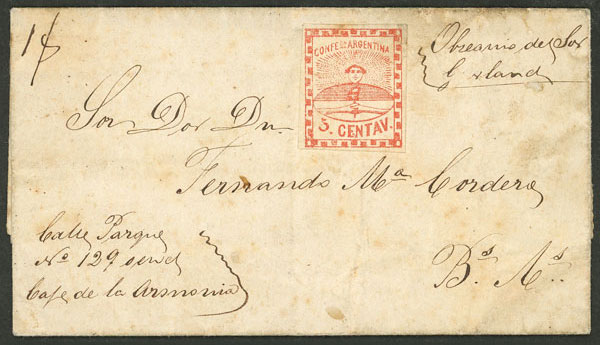 1f
CONFE ON ARGENTINA
3. CENTAV.
Obsequio del Sor
Sor Dor Dn
Fernando Ma Cordero
Calle Parque
No 129
Cafe de la Armonia
Bs As.